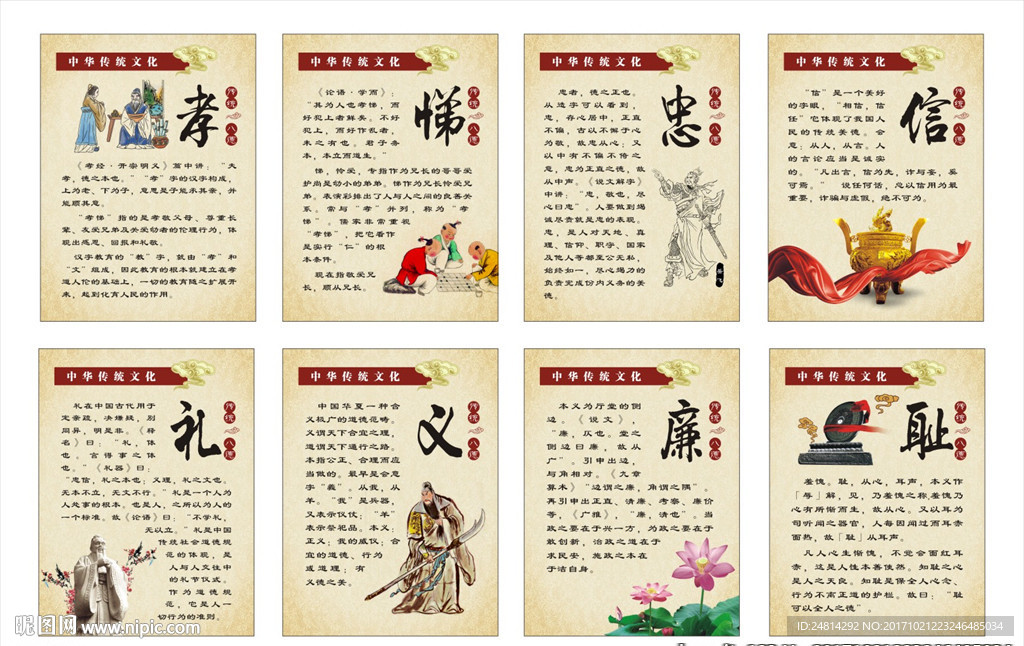 中华传统文化
孝
传统
八德
《孝经·开宗明义》篇中讲：“夫
孝，德之本也。”“孝”字的汉字构成，
上为老、下为子，意思是子能承其亲，并
能顺其意。
“孝悌”指的是孝敬父母、尊重长
辈、友爱兄弟及关爱幼者的伦理行为，体
现出感恩、回报和礼敬。
汉字教育的“教”字，就由“孝”和
“文”组成，因此教育的根本就建立在孝
道人伦的基础上，一切的教育随之扩展开
来，起到化育人民的作用。
中华传统文化
悌
传统
八德
《论语·学而》：
“其为人也孝悌，而
好犯上者鲜矣。不好
犯上，而好作乱者，
未之有也。君子务
本，本立而道生。”
悌，怜爱，专指作为兄长的哥哥爱
护尚是幼小的弟弟。悌作为兄长怜爱兄
弟。表演彩排出了人与人之间的良善关
系。常与“孝”并列，称为“孝
悌”，儒家非常重视
“孝悌”，把它看作
是实行“仁”的根
本条件。
现在指敬爱兄
长，顺从兄长。
中华传统文化
忠
传统
八德
忠者，德之正也。
从造字可以看到，
忠，存心居中，正直
不偏，古以不懈于心
为敬，故忠从心；又
以中有不偏不倚之
意，忠为正直之德，故
从中声。《说文解字》
中讲：“忠，敬也，尽
心曰忠”。人要做到竭
诚尽责就是忠的表现。
忠，是人对天地、真
理、信仰、职守、国家
及他人等都至公无私，
始终如一，尽心竭力的
负责完成份内义务的美
德。
岳飞
中华传统文化
信
传统
八德
“信”是一个美好
的字眼，“相信，信
任”它体现了我国人
民的传统美德。会
意：从人，从言。人
的言论应当是诚实
的。“凡出言，信为先，诈与妄，奚
可焉。”说任何话，总以信用为最
重要，诈骗与虚假，绝不可为。
中华传统文化
礼
传统
八德
礼在中国古代用于
定亲疏，决嫌疑，别
同异，明是非。《释
名》曰：“礼，体
也。言得事之体
也。”《礼器》曰：
“忠信，礼之本也；义理，礼之文也。
无本不立，无文不行。”礼是一个人为
人处事的根本。也是人，之所以为人的
一个标准。故《论语》曰：“不学礼，
无以立。”礼是中国
传统社会道德规
范的体现，是
人与人交往中
的礼节仪式。
作为道德规
范，它是人一
切行为的准则。
中华传统文化
义
传统
八德
中国华夏一种含
义极广的道德范畴。
义谓天下合宜之理，
道谓天下通行之路。
本指公正、合理而应
当做的。最早是会意
字“義”。从我，从
羊。“我”是兵器，
又表示仪仗；“羊”
表示祭祀品。本义：
正义；我的威仪；合
宜的道德、行为
或道理；有
义德之美。
中华传统文化
廉
传统
八德
本义为厅堂的侧
边。《说文》，
“廉，仄也。堂之
侧边曰廉，故从
广”。引申出边，
与角相对。《九章
算术》“边谓之廉，角谓之隅”。
再引申出正直、清廉、考察、廉价
等，《广雅》，“廉，清也”。当
政之要在于兴一方，为政之要在于
敢创新，治政之道在于
求民安，施政之本在
于洁自身。
中华传统文化
耻
传统
八德
羞愧。耻，从心，耳声，本义作
「辱」解，见，乃羞愧之称羞愧乃
心有所惭而生，故从心。又以耳为
司听闻之器官，人每因闻过而耳赤
面热，故「耻」从耳声。
凡人心生惭愧，不觉会面红耳
赤，这是人性本善使然。知耻之心
是人之天良。知耻是保全人心念、
行为不离正道的护栏。故曰：“耻
可以全人之德”。
昵图网 www.nipic.com
ID:24814292 NO:20171021223246485034